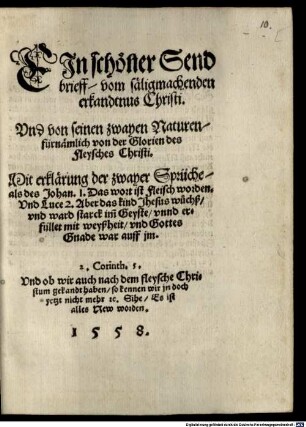 10.
EIn schöner Send
brieff/ vom säligmachenden
erkandenus Christi.
Vnd von seinen zwayen Naturen/
fürnämlich von der Glorien des
Fleysches Christi.
Mit erklärung der zwayer Sprüche/
als des Johan. 1. Das wort ist Fleisch worden.
Vnd Luce 2. Aber das kind Jhesus wůchß/
vnd ward starck im Geyste/ vnnd er-
füllet mit weyßheit/ vnd Gottes
Gnade war auff jm.
2. Corinth. 5.
Vnd ob wir auch nach dem fleysche Chri
stum gekandt haben/ so kennen wir jn doch
yetzt nicht mehr ⁊c. Sihe/ Es ist
alles New worden.
1558.